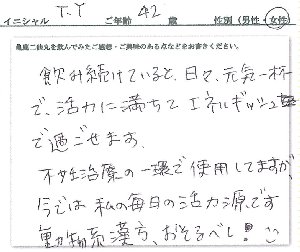 イニシャル T.Y ご年齢 42 歳 性別(男性・女性)
亀鹿二仙丸を飲んでみたご感想・ご興味のある点などをお書きください。
飲み続けていると、日々、元気一杯
で、活力に満ちて エネルギッシュ
で過ごせます.
不妊治療の一環で使用してますが、
今では 私の毎日の活力源です
動物系漢方、おそるべし!